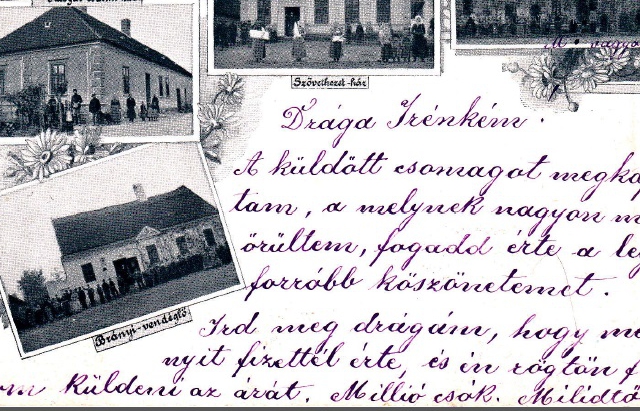 Szövetkezet-ház
Drága Irénkém.
A küldött csomagot megka
tam, a melynek nagyon m
örültem, fogadd érte a le
forróbb köszönetemet.
Brányi-vendéglő
Ird meg drágám, hogy me
nyit fizettél érte, és én rögtön f
om küldeni az árát. Millió csók. Milidtő